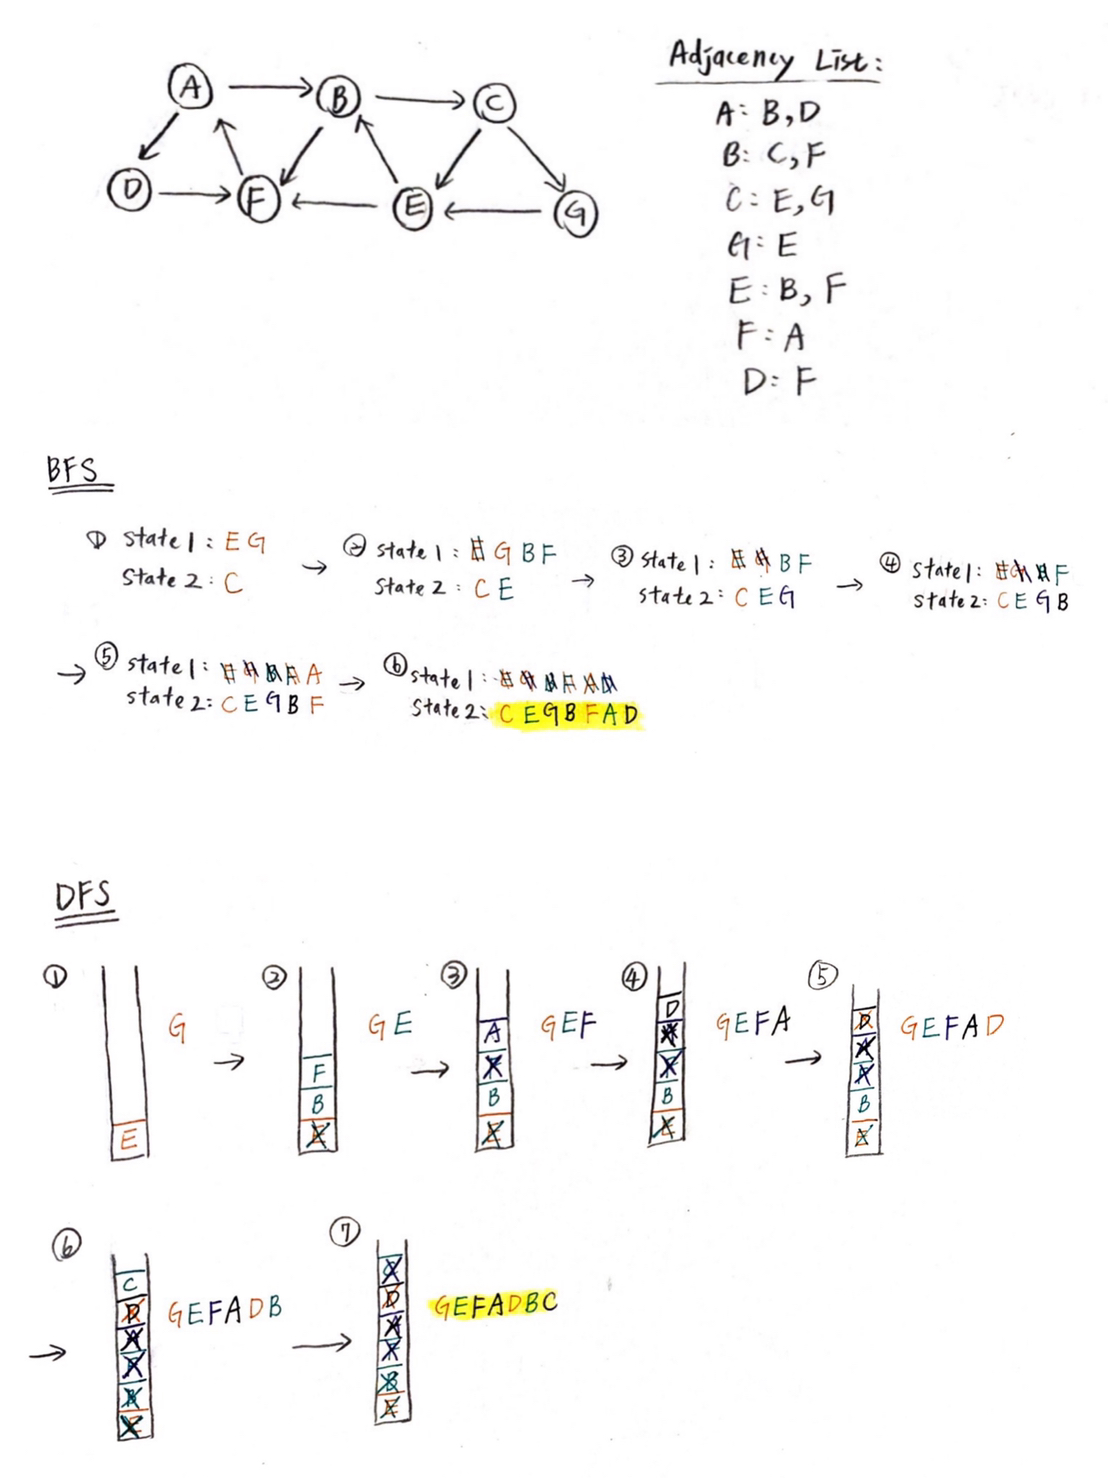 A B C
D F E G
Adjacency List:
A: B,D
B: C,F
C: E,G
G: E
E: B, F
F: A
D: F
BFS
① state1: E G
State 2: C
→ ② state1: E G B F
State 2: C E
→ ③ state1: E G B F
state2: C E G
→ ④ state1: E G B F
state2: C E G B
→ ⑤ state1: E G B F A
state2: C E G B F
→ ⑥ state1:
State2: C E G B F A D
DFS
① E G
→ ② F B E G E
→ ③ A F B E G E F
→ ④ D A F B E G E F A
→ ⑤ D A F B E G E F A D
→ ⑥ C D A F B E G E F A D B
→ ⑦ C D A F B E G E F A D B C